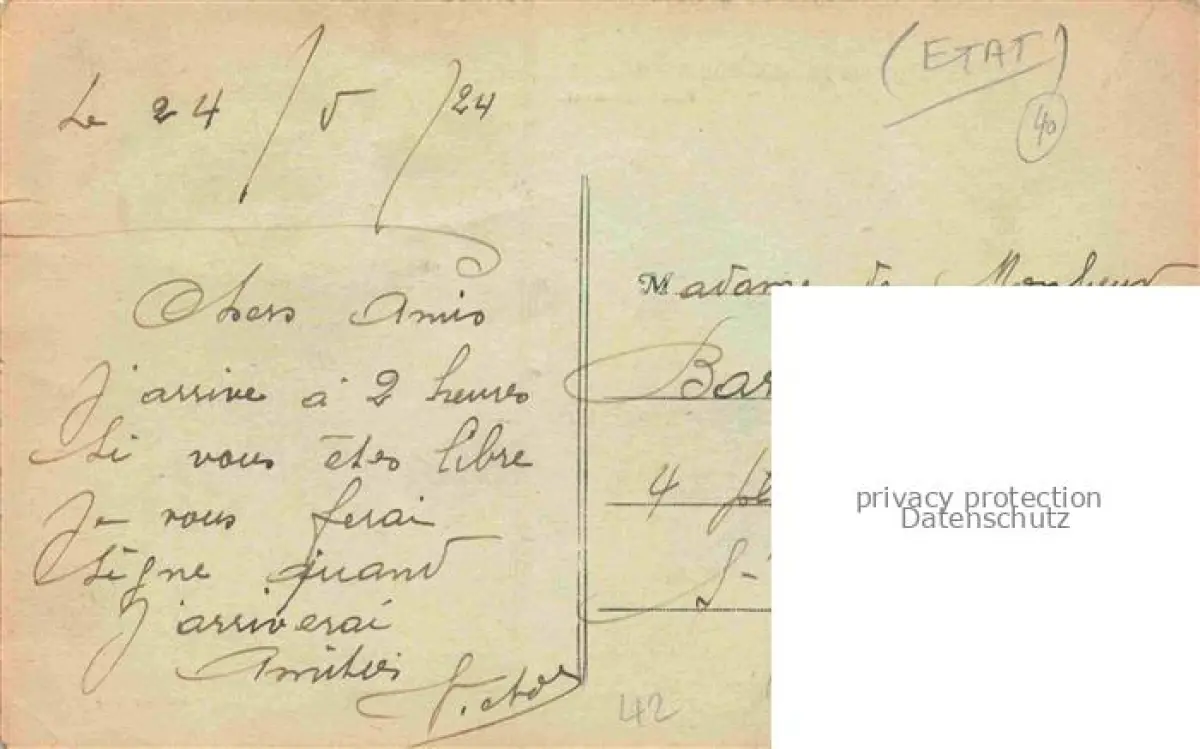 Le 24/5/24
(ETAT)
40
Chers Amis
J'arrive à 2 heures
Si vous êtes libre
Je vous ferai
signe quand
J'arriverai
Amitiés
Victor
Madame de
Bar
4
S-
42
privacy protection
Datenschutz